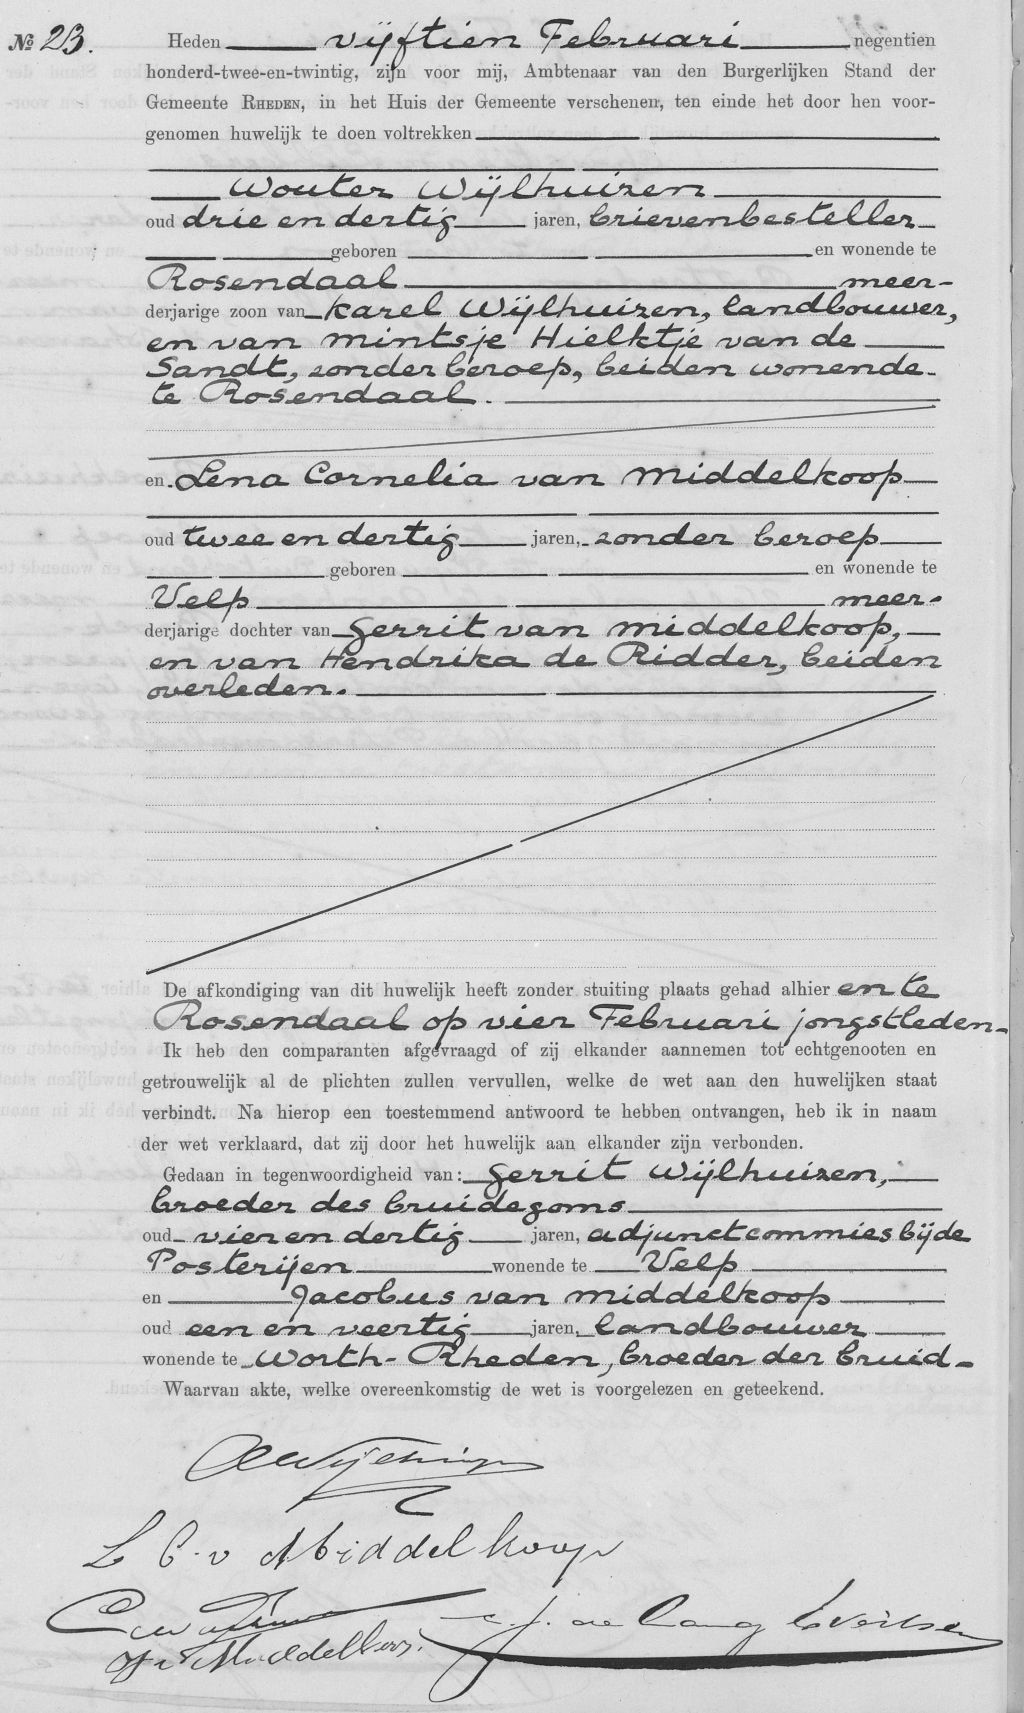 № 23.
Heden vijftien Februari negentien
honderd-twee-en-twintig, zijn voor mij, Ambtenaar van den Burgerlijken Stand der
Gemeente Rheden, in het Huis der Gemeente verschenen, ten einde het door hen voor-
genomen huwelijk te doen voltrekken
Wouter Wijlhuizen
oud drie en dertig jaren, brievenbesteller
geboren en wonende te
Rosendaal meer-
derjarige zoon van Karel Wijlhuizen, landbouwer,
en van Mintsje Hielktje van de
Sandt, zonder beroep, beiden wonende
te Rosendaal.
en Lena Cornelia van Middelkoop
oud twee en dertig jaren, zonder beroep
geboren en wonende te
Velp meer-
derjarige dochter van Gerrit van Middelkoop,
en van Hendrika de Ridder, beiden
overleden.
De afkondiging van dit huwelijk heeft zonder stuiting plaats gehad alhier en te
Rosendaal op vier Februari jongstleden
Ik heb den comparanten afgevraagd of zij elkander aannemen tot echtgenooten en
getrouwelijk al de plichten zullen vervullen, welke de wet aan den huwelijken staat
verbindt. Na hierop een toestemmend antwoord te hebben ontvangen, heb ik in naam
der wet verklaard, dat zij door het huwelijk aan elkander zijn verbonden.
Gedaan in tegenwoordigheid van: Gerrit Wijlhuizen,
broeder des bruidegoms
oud vier en dertig jaren, adjunct commies bij de
Posterijen wonende te Velp
en Jacobus van Middelkoop
oud een en veertig jaren, landbouwer
wonende te Worth-Rheden, broeder der bruid
Waarvan akte, welke overeenkomstig de wet is voorgelezen en geteekend.
L C. v Middelkoop
J. de Lang Evertsen
v Middelkoop.